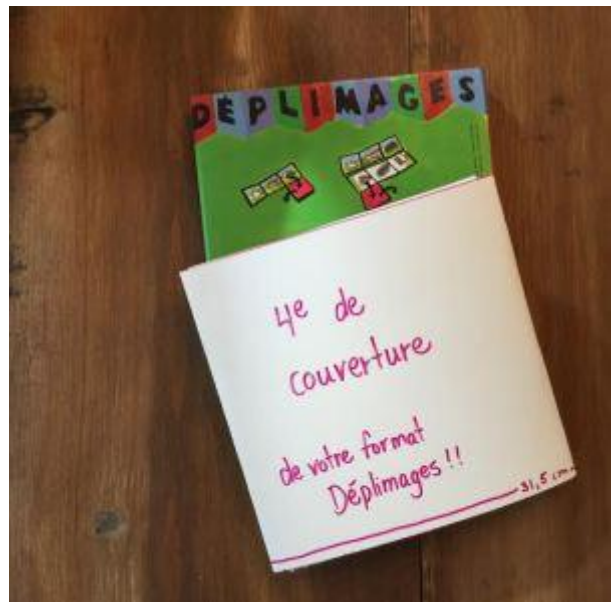 DÉPLIMAGES
4e de
couverture
de votre format
Déplimages !!
31,5 cm